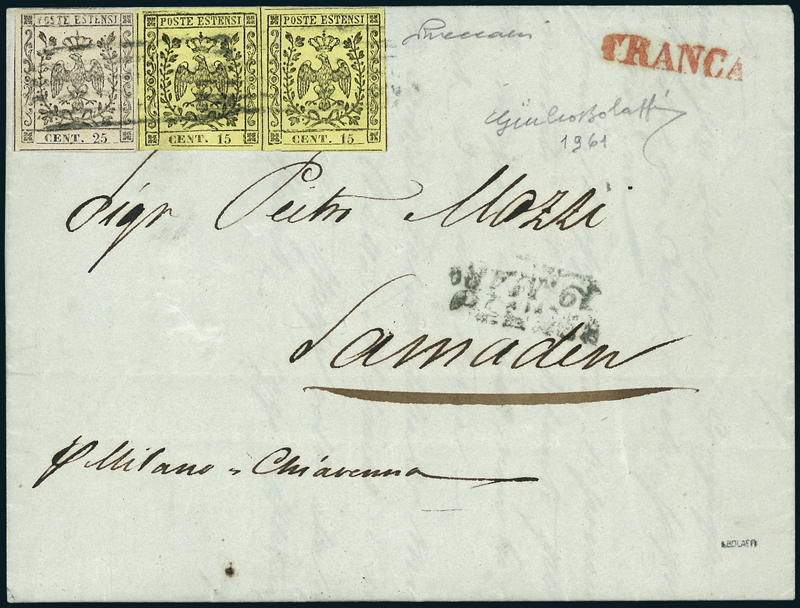 POSTE ESTENSI
CENT. 25
POSTE ESTENSI
CENT. 15
POSTE ESTENSI
CENT. 15
FRANCA
Giulio Bolaffi
1961
Sigr Pietro Mozzi
Samaden
p Milano = Chiavenna